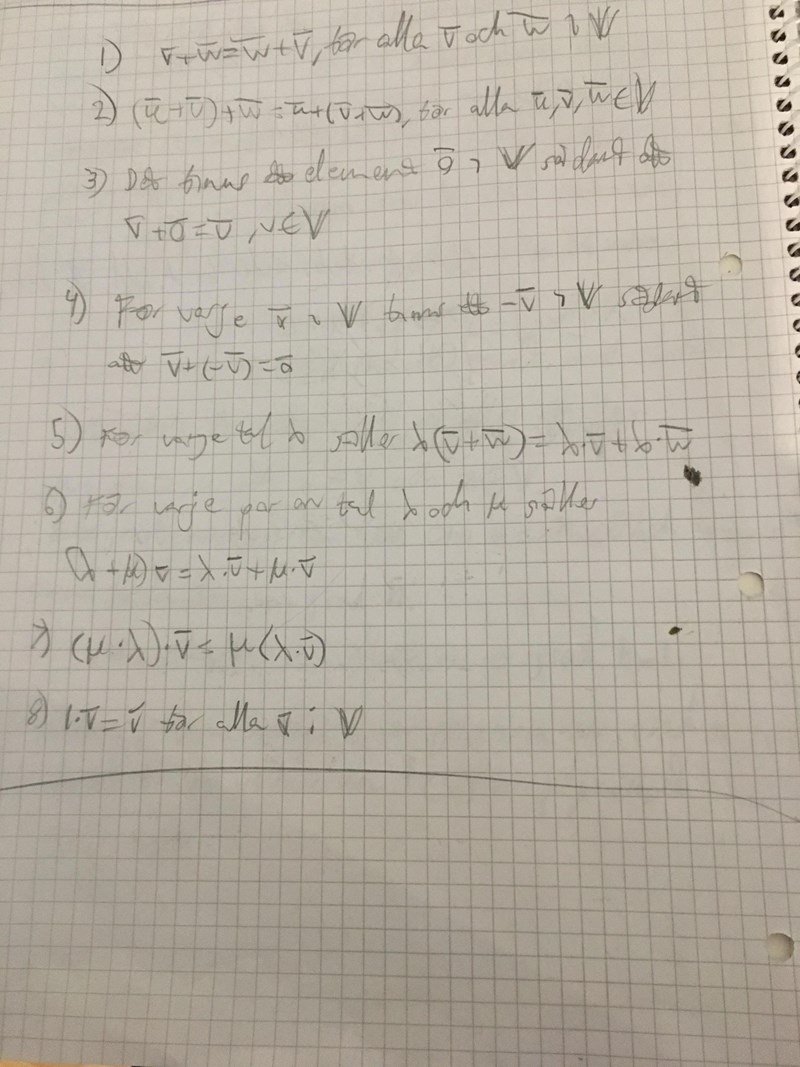 1) v̄+w̄=w̄+v̄, för alla v̄ och w̄ i V
2) (ū+v̄)+w̄=ū+(v̄+w̄), för alla ū,v̄,w̄∈V
3) Det finns ett element 0̄ i V sådant att
v̄+0̄=v̄, v∈V
4) För varje v̄ i V finns ett -v̄ i V sådant
att v̄+(-v̄)=0̄
5) För varje tal λ gäller λ(v̄+w̄)=λ·v̄+λ·w̄
6) För varje par av tal λ och μ gäller
(λ+μ)v̄=λ·v̄+μ·v̄
7) (μ·λ)·v̄=μ(λ·v̄)
8) 1·v̄=v̄ för alla v̄ i V